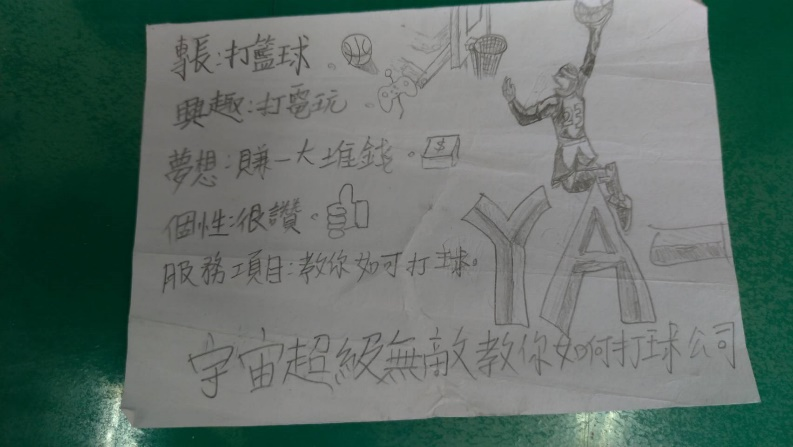 專長:打籃球。
興趣:打電玩。
夢想:賺一大堆錢。
個性:很讚。
服務項目:教你如可打球。
23
YA-
宇宙超級無敵教你如何打球公司